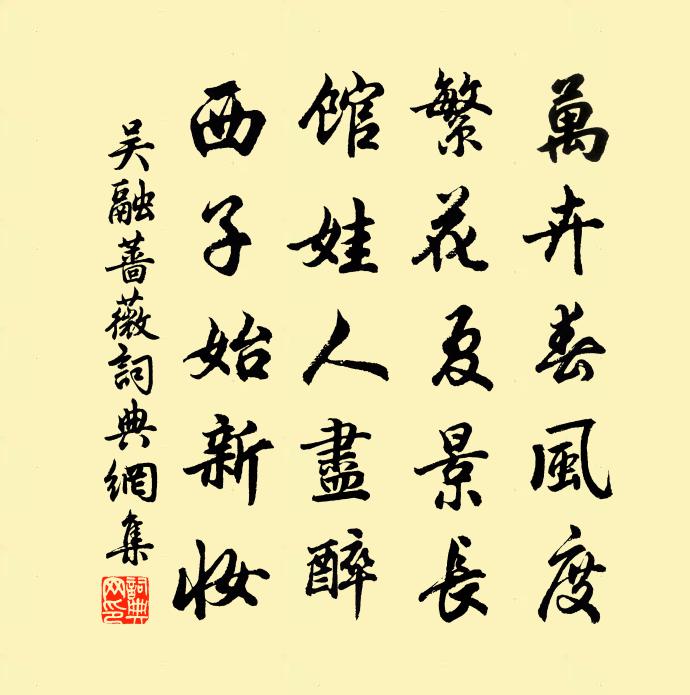 萬卉春風度
繁花夏景長
館娃人盡醉
西子始新妝
吴融薔薇詞典網集
詞典網印